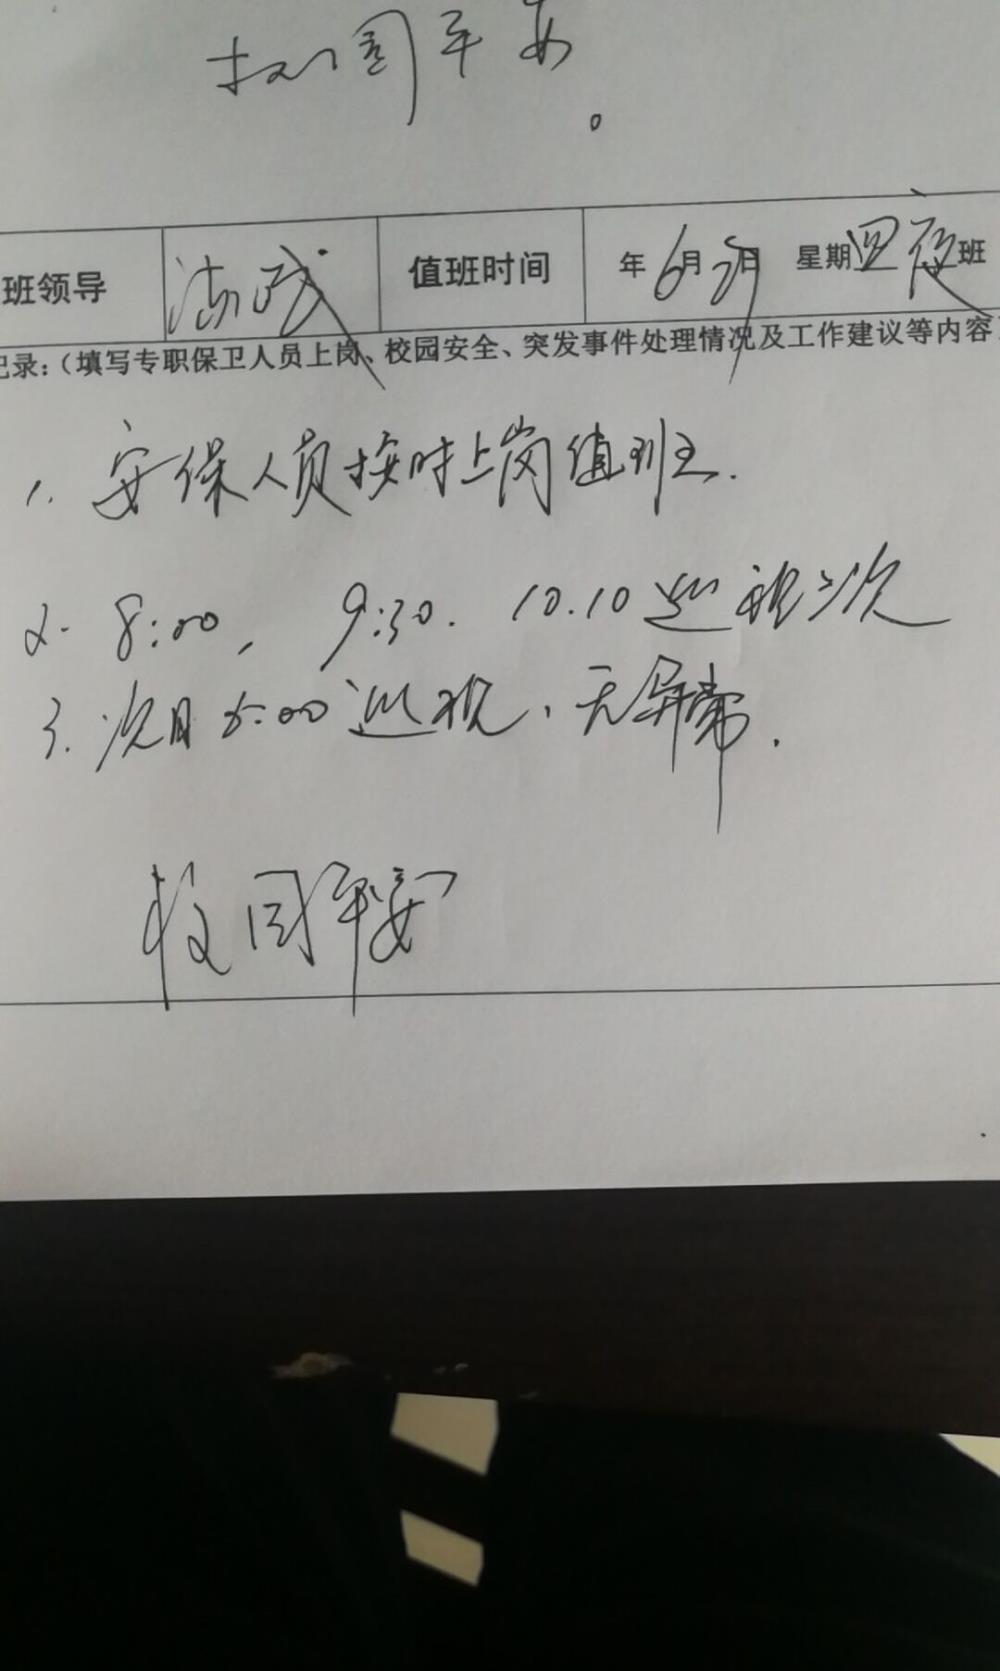 校园平安。
班领导 值班时间 年6月 日 星期四夜班
记录：（填写专职保卫人员上岗、校园安全、突发事件处理情况及工作建议等内容
1. 安保人员按时上岗值班.
2. 8:00, 9:30. 10.10巡视三次
3. 次日6:00巡视，无异常.
校园平安